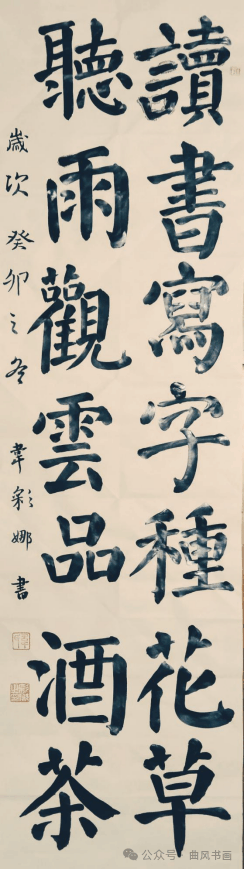 讀書寫字種花草
聽雨觀雲品酒茶
歲次癸卯之冬 韋彩娜書
公众号 · 曲风书画